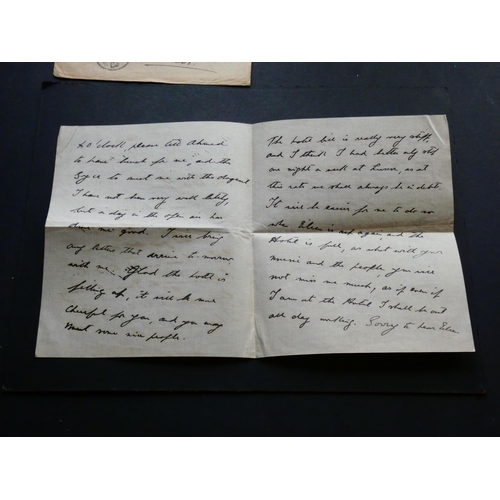 o'clock, please tell Ahmed
to have lunch for me, and the
Syce to meet me with the dogcart
I have not been very well lately,
but a day in the open air has
done me good. I will bring
any letters that arrive to morrow
with me. Glad the hotel is
filling up, it will be more
cheerful for you, and you may
meet some nice people.
The hotel bill is really very stiff,
and I think I had better only stop
one night a week at Luxor, as at
this rate we shall always be in debt.
It will be easier for me to do so
when Eileen is up again, and the
Hotel is full, as what with your
music and the people, you will
not miss me much, as if even if
I am at the Hotel I shall be out
all day working. Sorry to hear Eileen